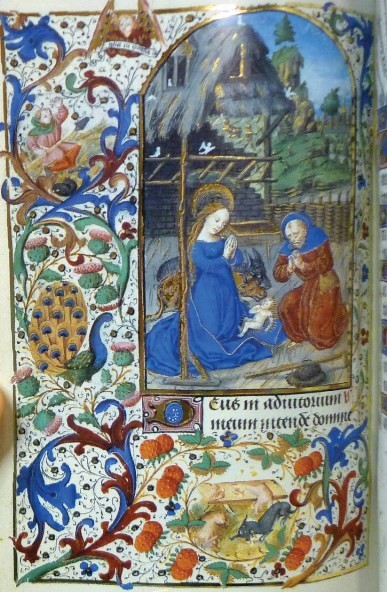 Deus in adiutorium
meum intende domine